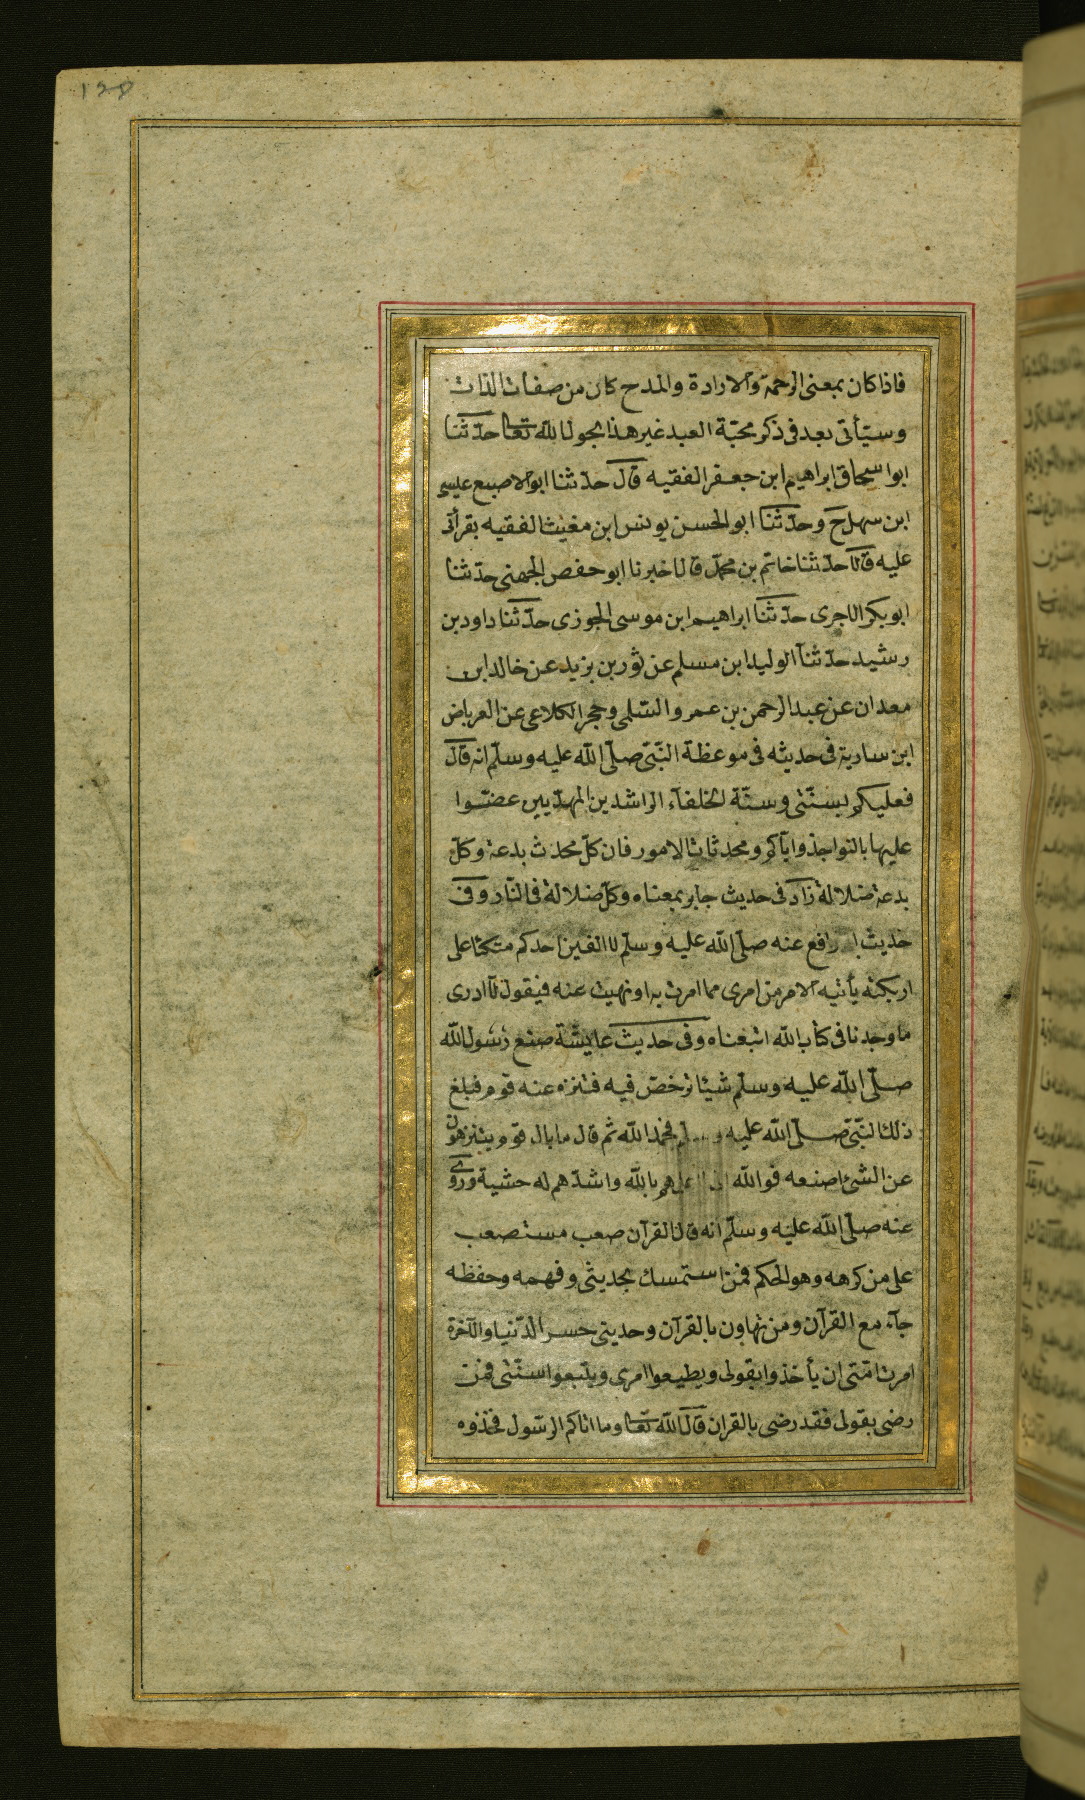 128
فاذا كان بمعنى الرحمة والارادة والمدح كان من صفات الذات
وسيأتى بعد فى ذكر محبّة العبد غير هذا بحول الله تعا حدّثنا
ابو اسحاق ابراهيم ابن جعفر الفقيه قال حدّثنا ابو الاصبع عيسى
ابن سهل ح وحدّثنا ابو الحسن يونس ابن مغيث الفقيه بقرأتى
عليه قالا حدّثنا خاتم بن محمّد قال اخبرنا ابو حفص الجهنى حدّثنا
ابو بكر الاجرى حدّثنا ابراهيم ابن موسى الجوزى حدّثنا داود بن
رشيد حدّثنا الوليد ابن مسلم عن ثور بن يزيد عن خالد ابن
معدان عن عبد الرحمن بن عمرو السّلمى وحجر الكلاعى عن العرباض
ابن سارية فى حديثه فى موعظة النّبىّ صلّى الله عليه وسلّم انه قال
فعليكم بسنّتى وسنّة الخلفآء الراشدين المهديّين عضّوا
عليها بالنواجذ وايآكم ومحدثات الامور فان كلّ محدث بدعة وكلّ
بدعة ضلالة زاد فى حديث جابر بمعناه وكلّ ضلالة فى النّار وفى
حديث رافع عنه صلّى الله عليه وسلّم لا الفين احدكم متكئا على
اريكته يأتيه الامر من امرى مما امرت به او نهيت عنه فيقول لا ادرى
ما وجدنا فى كتاب الله اتبعناه وفى حديث عايشة صنع رسول الله
صلّى الله عليه وسلّم شيئا ترخّص فيه فتنزه عنه قوم فبلغ
ذلك النّبىّ صلّى الله عليه فحمد الله ثم قال ما بال قوم يتنزهون
عن الشئ اصنعه فوالله بالله واشدّهم له خشية وروى
عنه صلّى الله عليه وسلّم انه قال القرآن صعب مستصعب
على من كرهه وهو الحكم فمن استمسك بحديثى وفهمه وحفظه
جآء مع القرآن ومن تهاون بالقرآن وحديثى خسر الدّنيا والآخرة
امرت امّتى ان يأخذوا بقولى ويطيعوا امرى ويتّبعوا سنّتى فمن
رضى بقولى فقد رضى بالقران قال الله تعا وما اتاكم الرسّول فخذوه